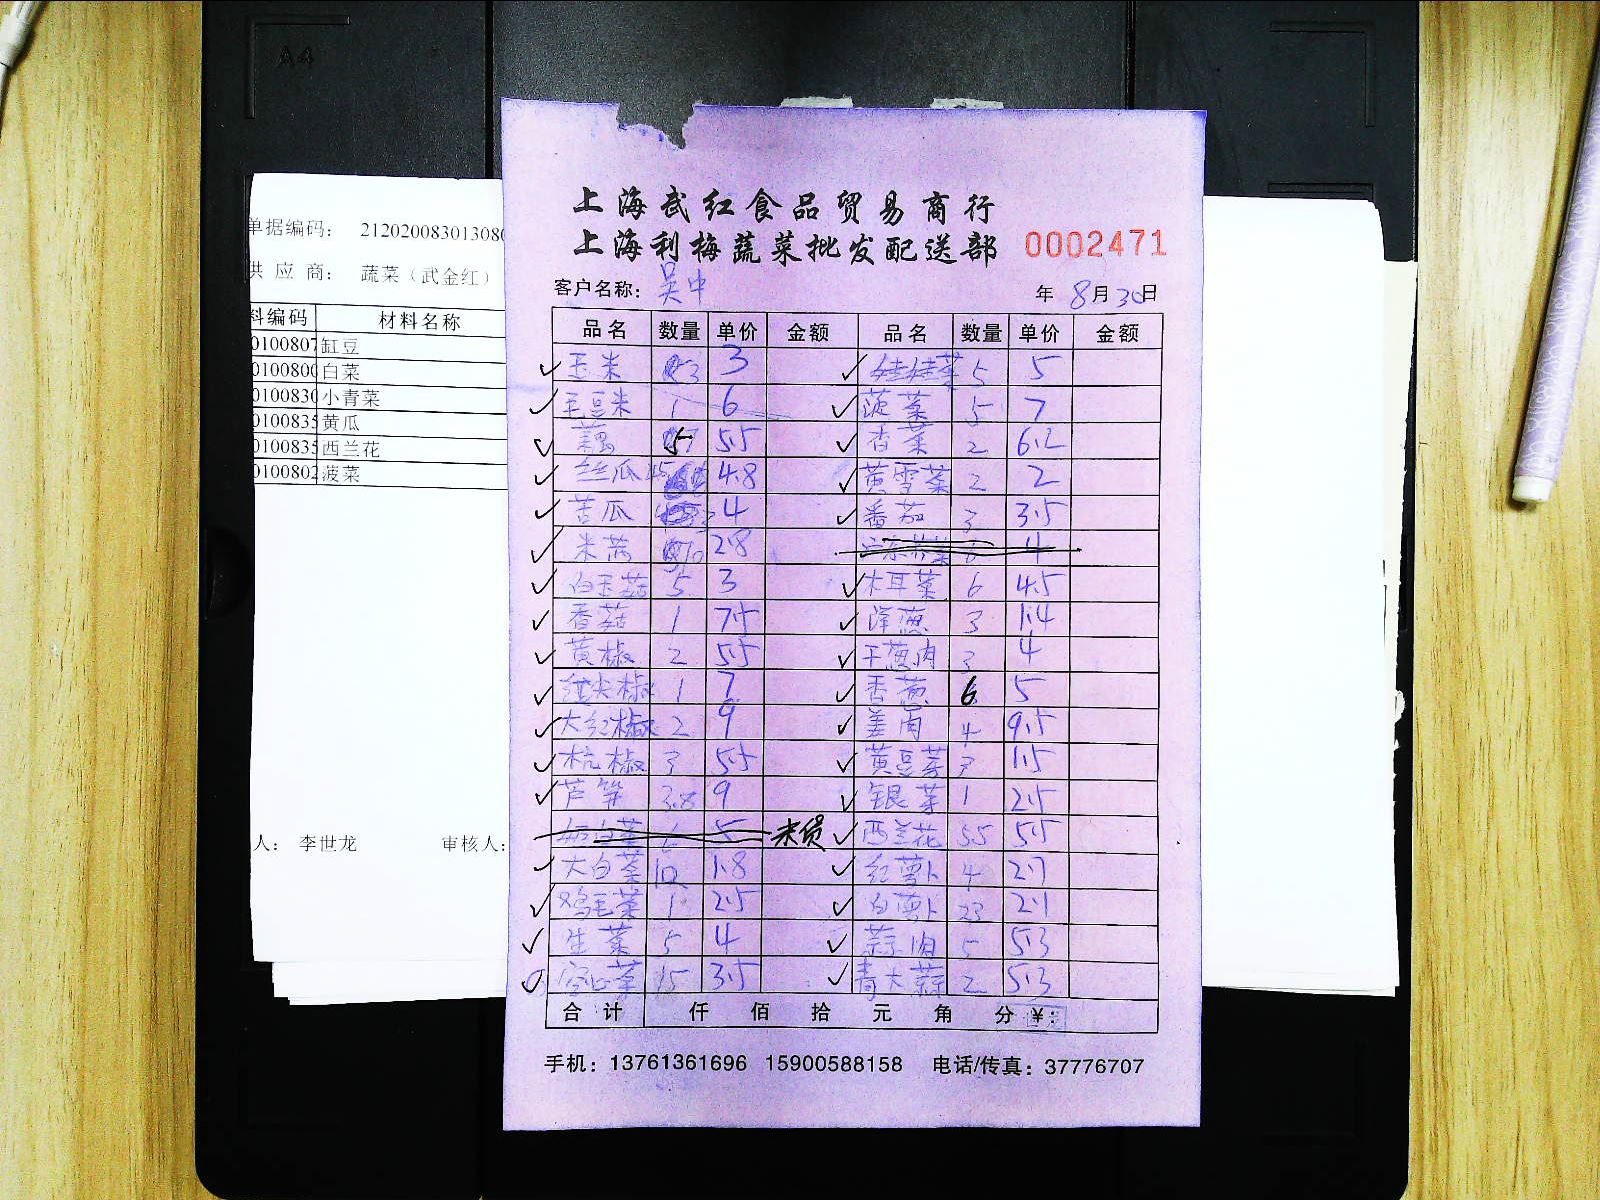 A4
单据编码： 212020083013080
供 应 商： 蔬菜（武金红）
料编码 材料名称
0100807 缸豆
0100800 白菜
0100830 小青菜
0100835 黄瓜
0100835 西兰花
0100802 菠菜
人： 李世龙 审核人：
上海武红食品贸易商行
上海利梅蔬菜批发配送部 0002471
客户名称： 吴中 年 8月30日
品名 数量 单价 金额 品名 数量 单价 金额
玉米 3 3 娃娃菜 5 5
毛豆米 1 6 菠菜 5 7
藕 5 5.5 香菜 2 6.2
丝瓜 4.8 黄雪菜 2 2
苦瓜 4 番茄 3 3.5
米苋 10 2.8 4
白玉菇 5 3 木耳菜 6 4.5
香菇 1 7.5 洋葱 3 1.4
黄椒 2 5.5 干葱肉 3 4
红尖椒 1 7 香葱 6 5
大红椒 2 9 姜肉 4 9.5
杭椒 3 5.5 黄豆芽 3 1.5
芦笋 3.8 9 银芽 1 2.5
奶白菜 6 5 未货 西兰花 55 5.5
大白菜 10 1.8 红萝卜 4 2.7
鸡毛菜 1 2.5 白萝卜 23 2.1
生菜 5 4 蒜肉 5 5.3
空心菜 15 3.5 青大蒜 2 5.3
合计 仟 佰 拾 元 角 分 ¥：
手机：13761361696 15900588158 电话/传真：37776707